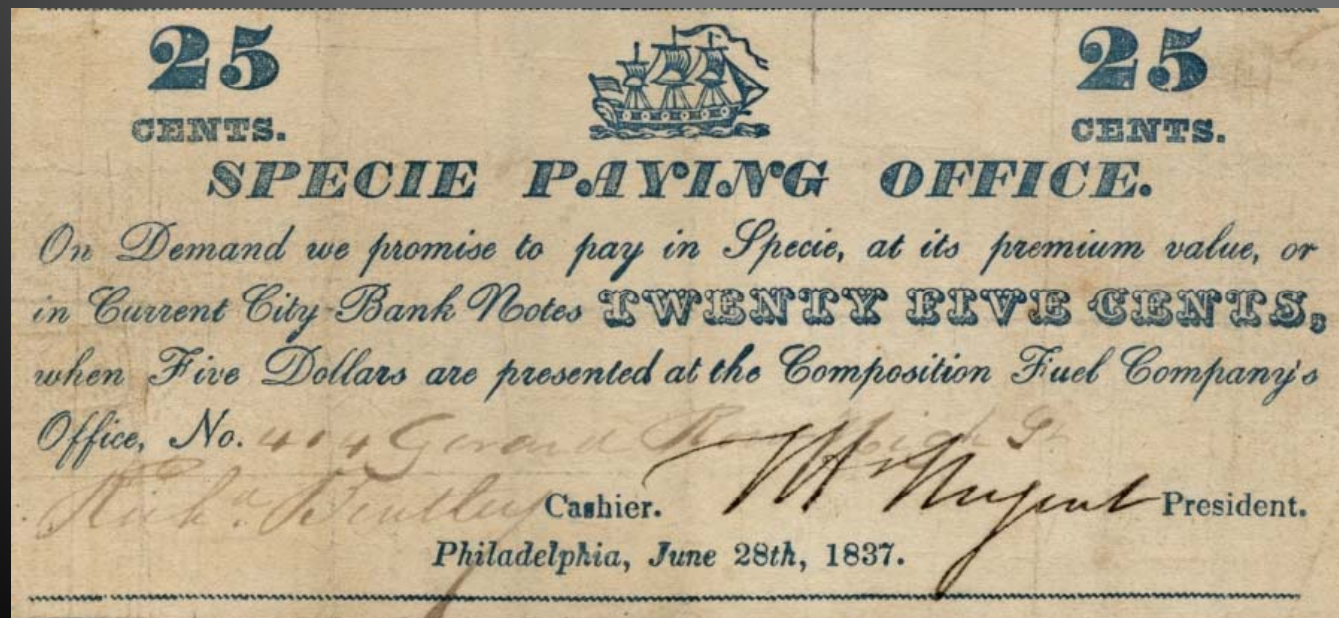 25 25
CENTS. CENTS.
SPECIE PAYING OFFICE.
On Demand we promise to pay in Specie, at its premium value, or
in Current City Bank Notes TWENTY FIVE CENTS,
when Five Dollars are presented at the Composition Fuel Company's
Office, No. 404 High St
Cashier. Nugent President.
Philadelphia, June 28th, 1837.